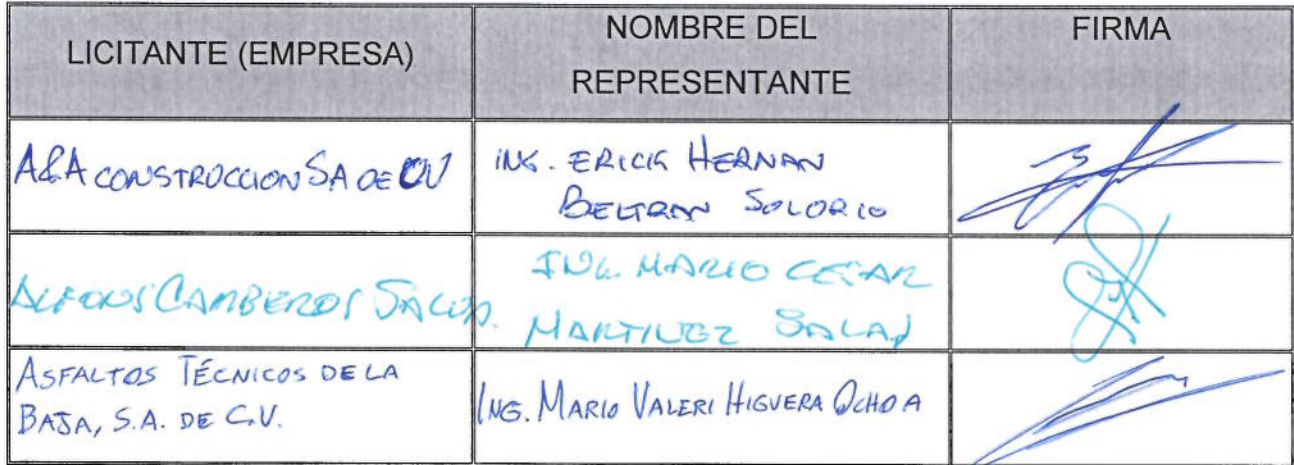 LICITANTE (EMPRESA)
NOMBRE DEL
REPRESENTANTE
FIRMA
A&A CONSTRUCCION SA DE CV
ING. ERICK HERNAN
BELTRAN SOLORIO
ALFONSO CAMBEROS
ING. MARIO CESAR
MARTINEZ SALAS
ASFALTOS TÉCNICOS DE LA
BAJA, S.A. DE C.V.
ING. MARIO VALERI HIGUERA OCHOA